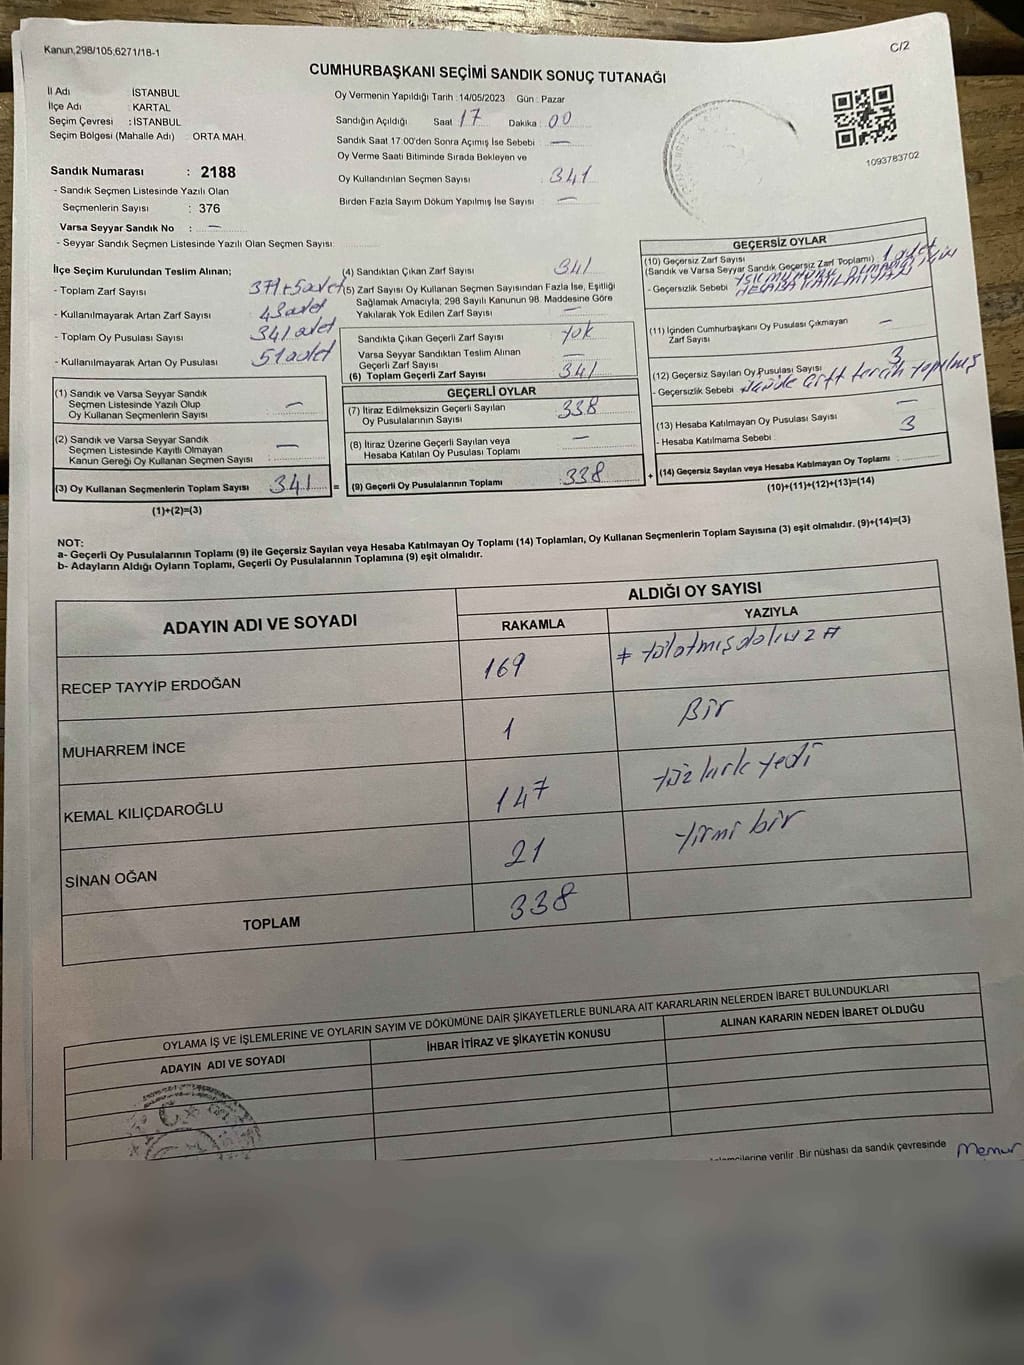 Kanun,298/105,6271/18-1
C/2
CUMHURBAŞKANI SEÇİMİ SANDIK SONUÇ TUTANAĞI
İl Adı : İSTANBUL
İlçe Adı : KARTAL
Seçim Çevresi : İSTANBUL
Seçim Bölgesi (Mahalle Adı) : ORTA MAH.
Sandık Numarası : 2188
- Sandık Seçmen Listesinde Yazılı Olan
Seçmenlerin Sayısı : 376
Varsa Seyyar Sandık No : —
- Seyyar Sandık Seçmen Listesinde Yazılı Olan Seçmen Sayısı:
Oy Vermenin Yapıldığı Tarih : 14/05/2023 Gün : Pazar
Sandığın Açıldığı Saat 17 Dakika : 00
Sandık Saat 17:00'den Sonra Açımış İse Sebebi —
Oy Verme Saati Bitiminde Sırada Bekleyen ve
Oy Kullandırılan Seçmen Sayısı : 341
Birden Fazla Sayım Döküm Yapılmış İse Sayısı —
1093783702
İlçe Seçim Kurulundan Teslim Alınan;
- Toplam Zarf Sayısı 371+5 adet
- Kullanılmayarak Artan Zarf Sayısı 43 adet
- Toplam Oy Pusulası Sayısı 341 adet
- Kullanılmayarak Artan Oy Pusulası 51 adet
(1) Sandık ve Varsa Seyyar Sandık
Seçmen Listesinde Yazılı Olup
Oy Kullanan Seçmenlerin Sayısı : —
(2) Sandık ve Varsa Seyyar Sandık
Seçmen Listesinde Kayıtlı Olmayan
Kanun Gereği Oy Kullanan Seçmen Sayısı : —
(3) Oy Kullanan Seçmenlerin Toplam Sayısı 341 =
(1)+(2)=(3)
(4) Sandıktan Çıkan Zarf Sayısı 341
(5) Zarf Sayısı Oy Kullanan Seçmen Sayısından Fazla İse, Eşitliği
Sağlamak Amacıyla; 298 Sayılı Kanunun 98. Maddesine Göre
Yakılarak Yok Edilen Zarf Sayısı : —
Sandıkta Çıkan Geçerli Zarf Sayısı Yok
Varsa Seyyar Sandıktan Teslim Alınan
Geçerli Zarf Sayısı —
(6) Toplam Geçerli Zarf Sayısı 341
GEÇERLİ OYLAR
(7) İtiraz Edilmeksizin Geçerli Sayılan
Oy Pusulalarının Sayısı : 338
(8) İtiraz Üzerine Geçerli Sayılan veya
Hesaba Katılan Oy Pusulası Toplamı : —
(9) Geçerli Oy Pusulalarının Toplamı : 338 +
GEÇERSİZ OYLAR
(10) Geçersiz Zarf Sayısı
(Sandık ve Varsa Seyyar Sandık Geçersiz Zarf Toplamı) : 1 adet
- Geçersizlik Sebebi : OLMADIĞI İÇİN
HESABA
(11) İçinden Cumhurbaşkanı Oy Pusulası Çıkmayan
Zarf Sayısı —
(12) Geçersiz Sayılan Oy Pusulası Sayısı 3
- Geçersizlik Sebebi : tercih yapılmış
(13) Hesaba Katılmayan Oy Pusulası Sayısı —
- Hesaba Katılmama Sebebi : 3
(14) Geçersiz Sayılan veya Hesaba Katılmayan Oy Toplamı :
(10)+(11)+(12)+(13)=(14)
NOT:
a- Geçerli Oy Pusulalarının Toplamı (9) ile Geçersiz Sayılan veya Hesaba Katılmayan Oy Toplamı (14) Toplamları, Oy Kullanan Seçmenlerin Toplam Sayısına (3) eşit olmalıdır. (9)+(14)=(3)
b- Adayların Aldığı Oyların Toplamı, Geçerli Oy Pusulalarının Toplamına (9) eşit olmalıdır.
ADAYIN ADI VE SOYADI
ALDIĞI OY SAYISI
RAKAMLA YAZIYLA
RECEP TAYYİP ERDOĞAN 169 # yüzatmışdokuz #
MUHARREM İNCE 1 Bir
KEMAL KILIÇDAROĞLU 147 yüz kırk yedi
SİNAN OĞAN 21 yirmi bir
TOPLAM 338
OYLAMA İŞ VE İŞLEMLERİNE VE OYLARIN SAYIM VE DÖKÜMÜNE DAİR ŞİKAYETLERLE BUNLARA AİT KARARLARIN NELERDEN İBARET BULUNDUKLARI
ADAYIN ADI VE SOYADI İHBAR İTİRAZ VE ŞİKAYETİN KONUSU ALINAN KARARIN NEDEN İBARET OLDUĞU
verilir. Bir nüshası da sandık çevresinde
Memur